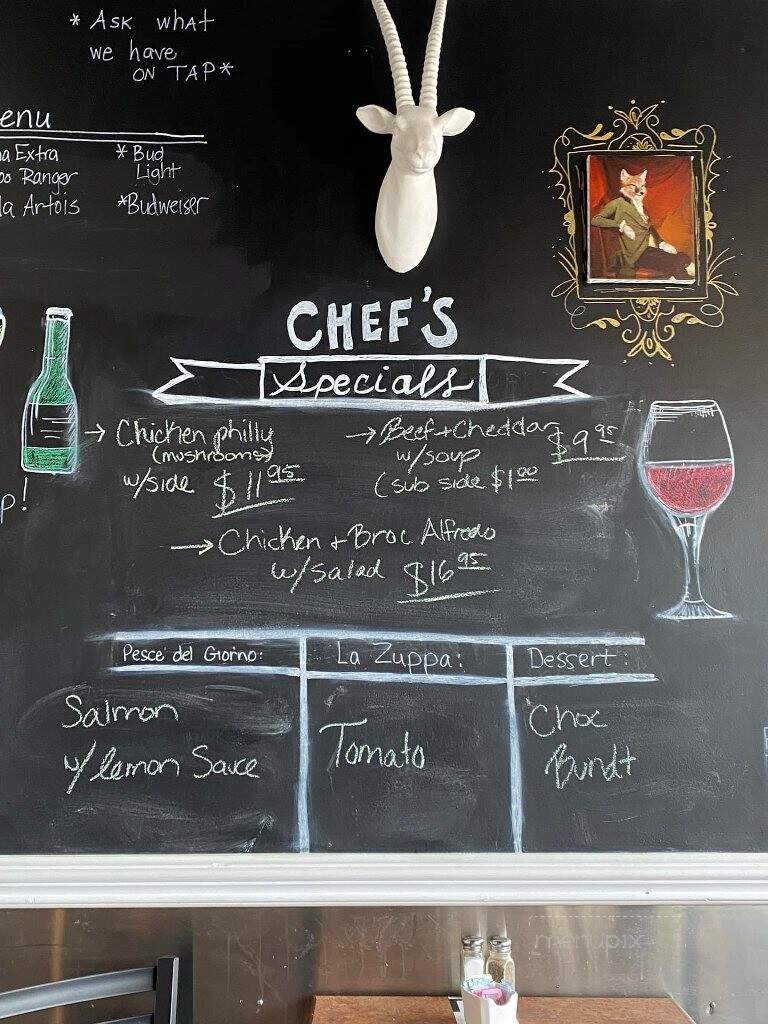 * ASK WHAT
we have
ON TAP *
enu
a Extra
* Bud
Light
oo Ranger
la Artois
*Budweiser
CHEF'S
Specials
→ Chicken philly
(mushrooms)
w/side $11 95
→ Beef + Cheddar $9 95
w/soup
(sub side $1 00
p!
→ Chicken + Broc Alfredo
w/salad $16 95
Pesce del Giorno:
La Zuppa:
Dessert:
Salmon
w/ lemon Sauce
Tomato
Choc
Bundt
menupix